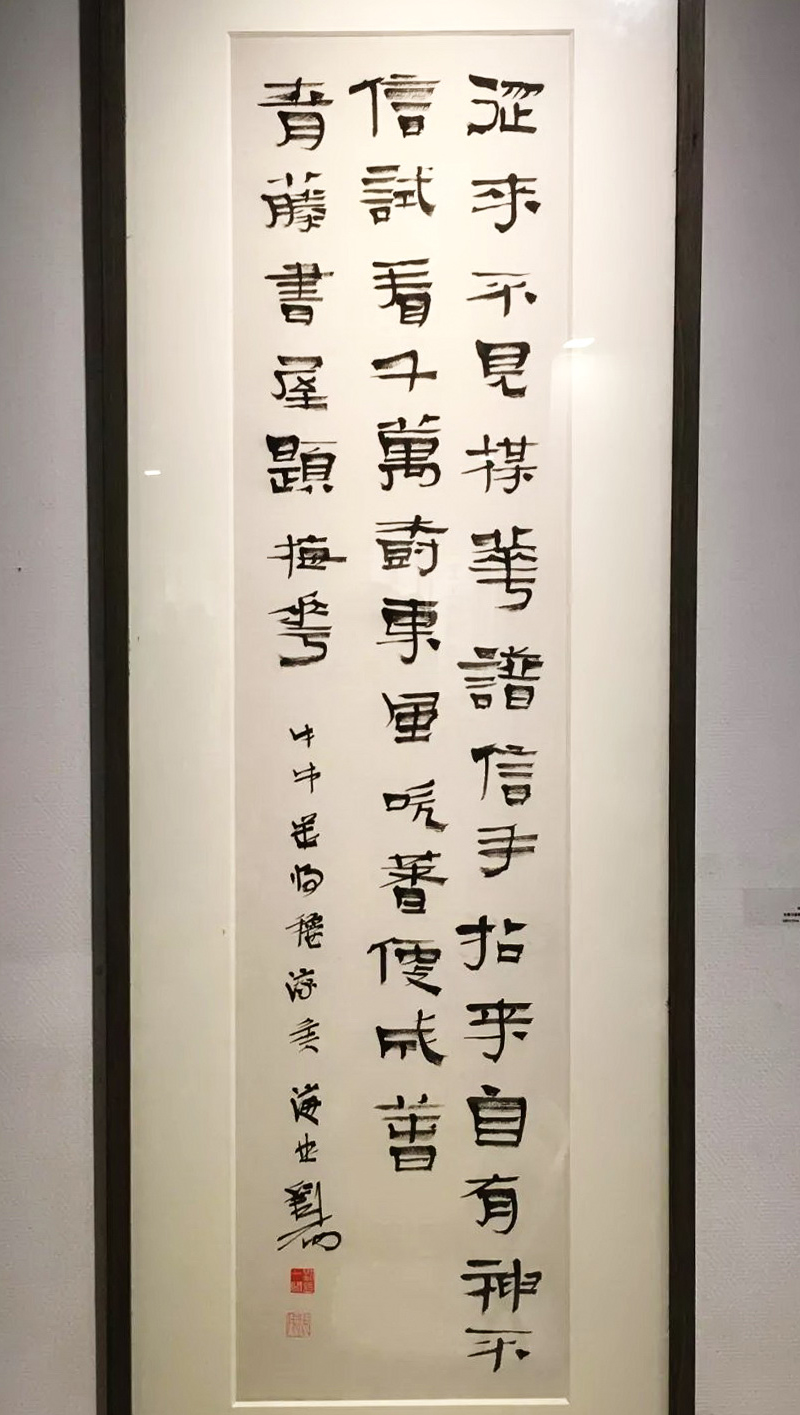 從来不見楳華譜信手拈来自有神不
信試看千萬尌東風吹著便成萅
青藤書屋題梅華